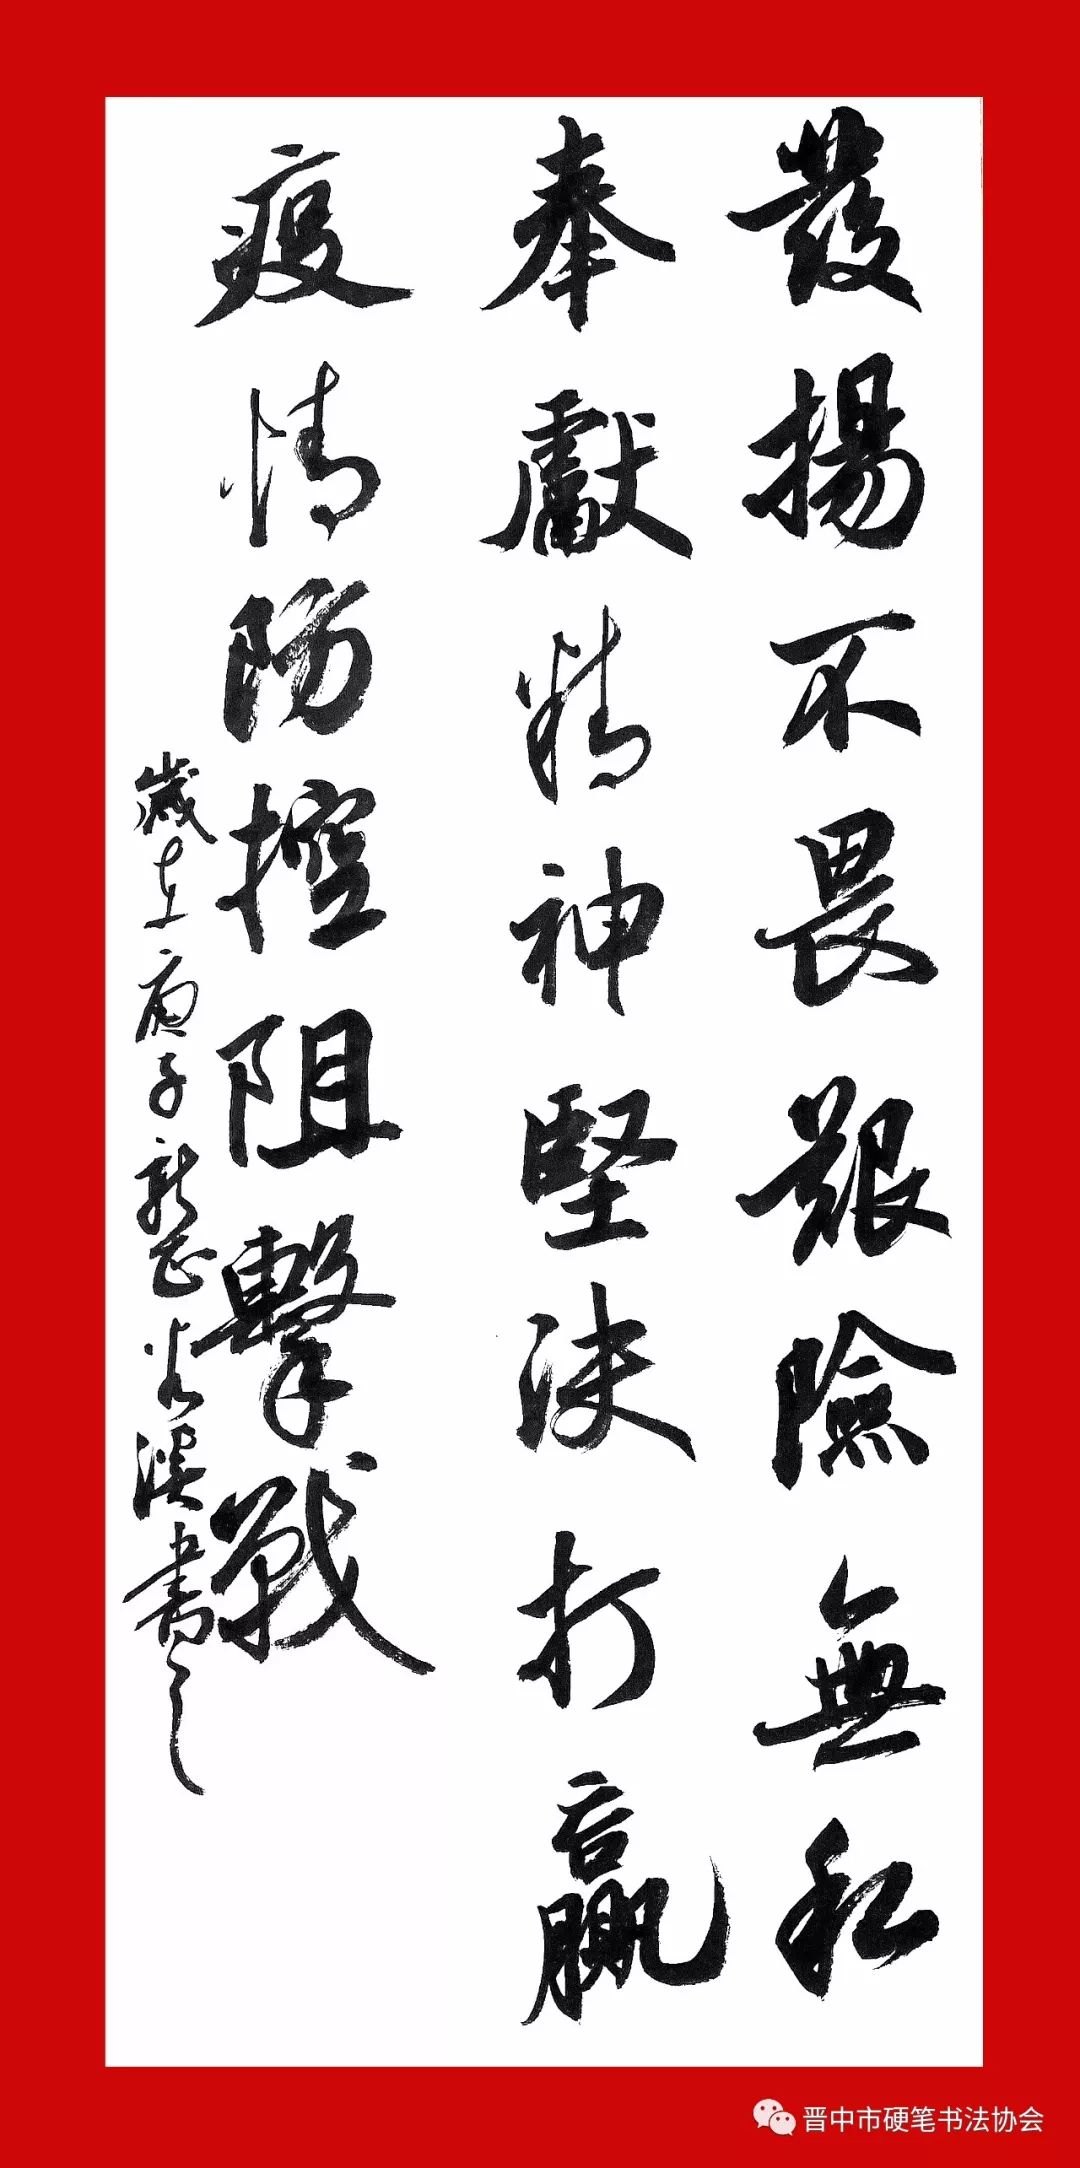 發揚不畏艱險無私
奉獻精神堅決打贏
疫情防控阻擊戰
歲在庚子新正炎溪書之
晋中市硬笔书法协会